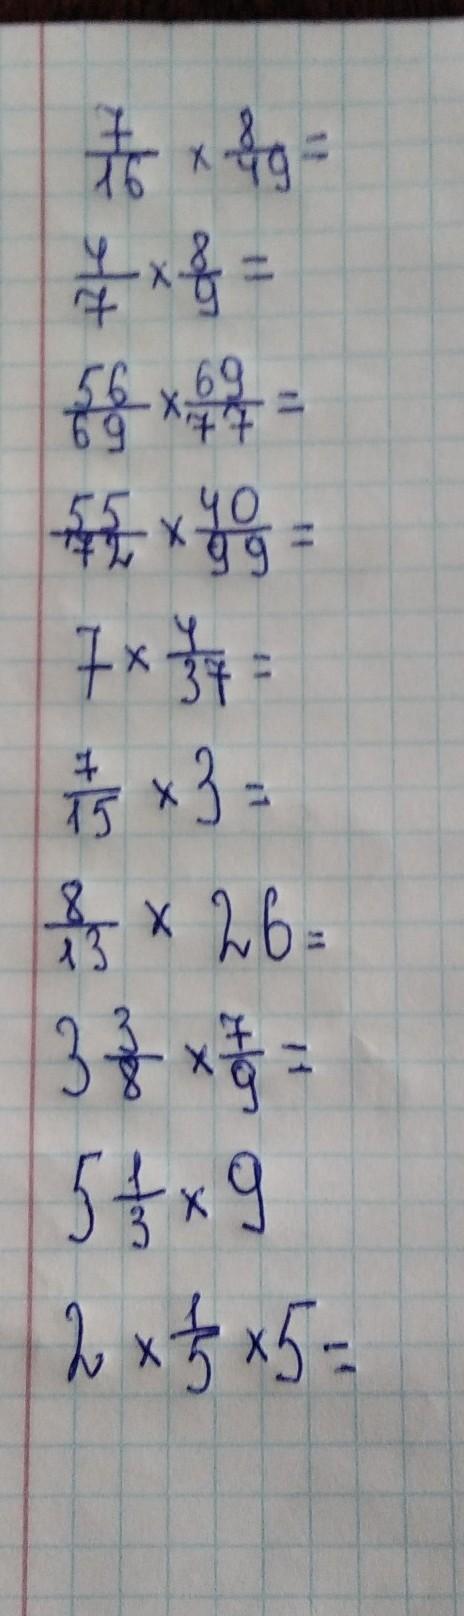 7/16 × 8/49 =
4/7 × 8/9 =
56/69 × 69/77 =
55/72 × 40/99 =
7 × 4/37 =
7/15 × 3 =
8/13 × 26 =
3 3/8 × 7/9 =
5 1/3 × 9
2 × 1/5 × 5 =